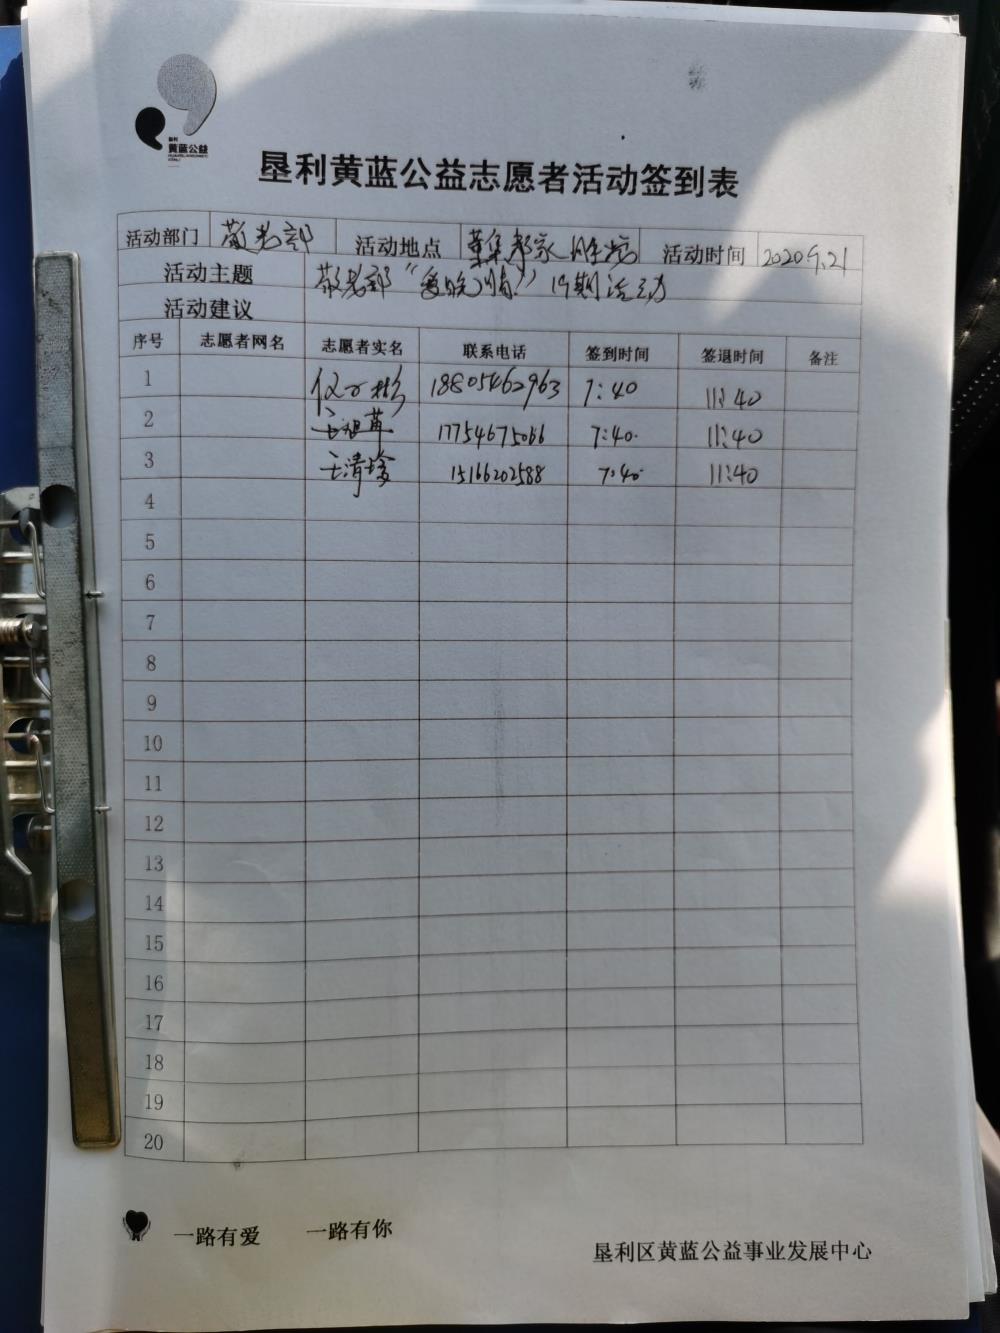 垦利
黄蓝公益
垦利黄蓝公益志愿者活动签到表
活动部门 敬老部 活动地点 活动时间 2020 9.21
活动主题 敬老部“爱晚情”19期活动
活动建议
序号 志愿者网名 志愿者实名 联系电话 签到时间 签退时间 备注
1 18805462963 7:40 11:40
2 17754675066 7:40 11:40
3 王清 15166202588 7:40 11:40
4
5
6
7
8
9
10
11
12
13
14
15
16
17
18
19
20
一路有爱 一路有你
垦利区黄蓝公益事业发展中心